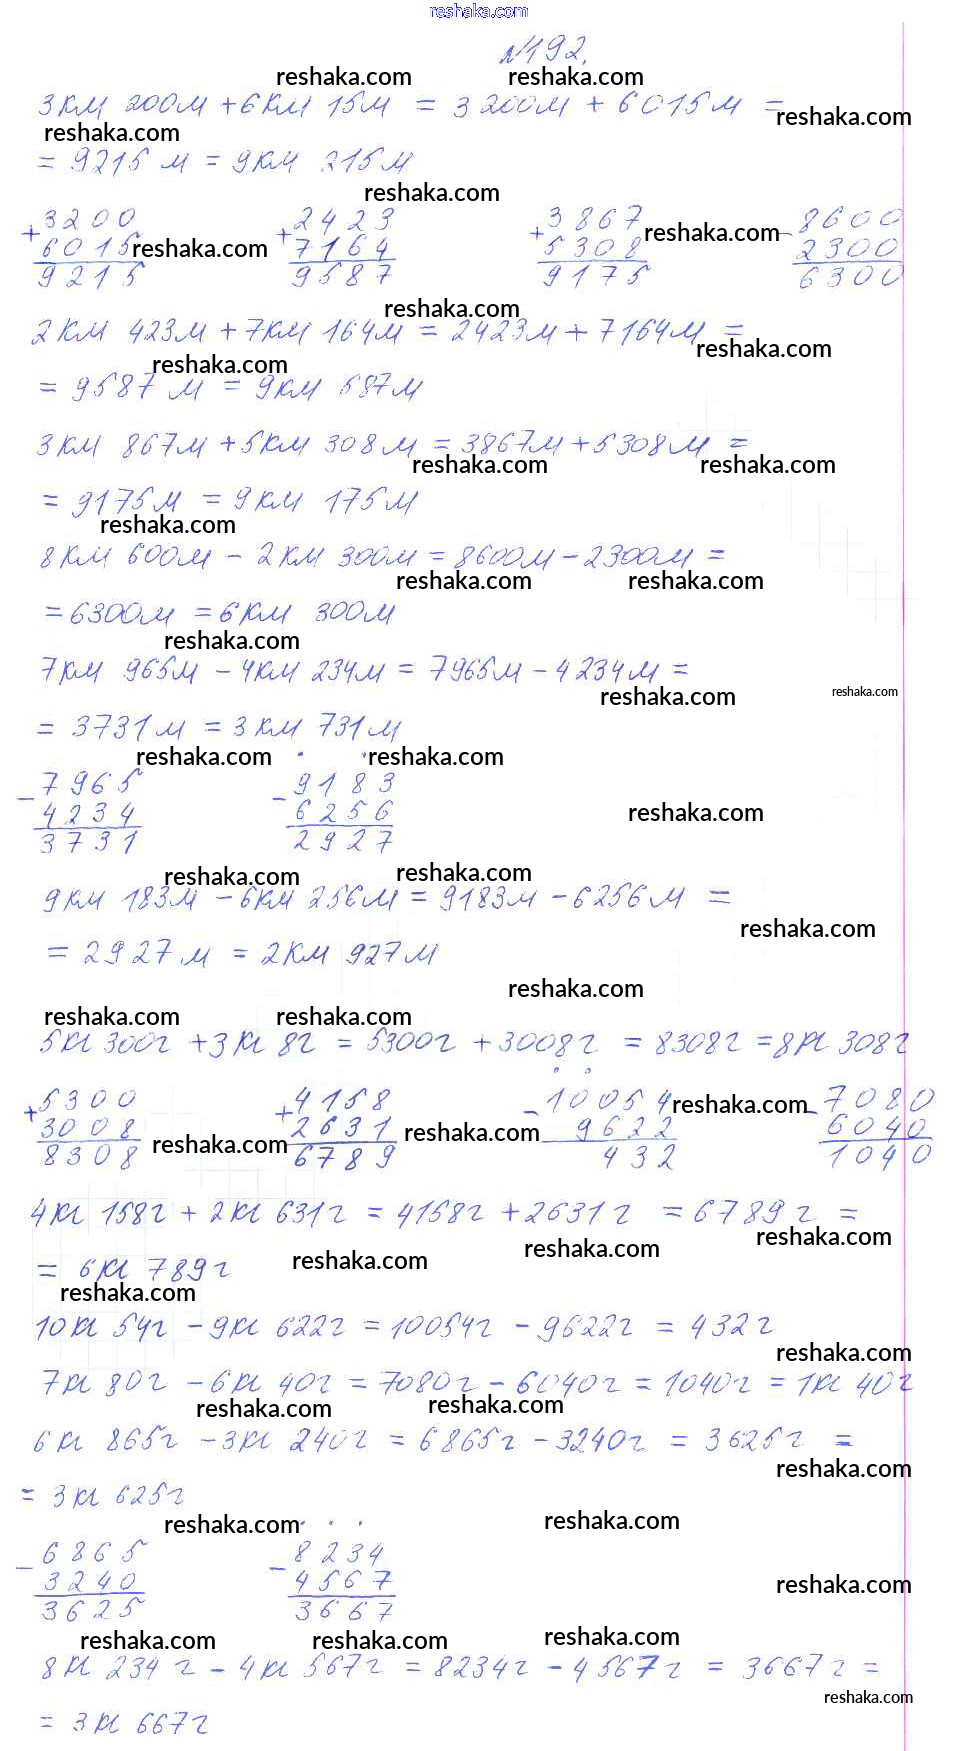 reshaka.com
№192.
reshaka.com reshaka.com
3км 200м + 6км 15м = 3200м + 6015м =
reshaka.com
reshaka.com
= 9215 м = 9км 215м
reshaka.com
+3200 +2423 +3867 -8600
6015 7164 5308 2300
reshaka.com reshaka.com
9215 9587 9175 6300
reshaka.com
2км 423м + 7км 164м = 2423м + 7164м =
reshaka.com
reshaka.com
= 9587 м = 9км 587м
3км 867м + 5км 308м = 3867м + 5308м =
reshaka.com reshaka.com
= 9175м = 9км 175м
reshaka.com
8км 600м - 2км 300м = 8600м - 2300м =
reshaka.com reshaka.com
= 6300м = 6км 300м
reshaka.com
7км 965м - 4км 234м = 7965м - 4234м =
reshaka.com reshaka.com
= 3731м = 3км 731м
reshaka.com reshaka.com
-7965 -9183
4234 6256
reshaka.com
3731 2927
reshaka.com reshaka.com
9км 183м - 6км 256м = 9183м - 6256м =
reshaka.com
= 2927м = 2км 927м
reshaka.com
reshaka.com reshaka.com
5кг 300г + 3кг 8г = 5300г + 3008г = 8308г = 8кг 308г
+5300 +4158 -10054 -7080
reshaka.com
3008 2631 9622 6040
reshaka.com reshaka.com
8308 6789 432 1040
4кг 158г + 2кг 631г = 4158г + 2631г = 6789г =
reshaka.com reshaka.com reshaka.com
= 6кг 789г
reshaka.com
10кг 54г - 9кг 622г = 10054г - 9622г = 432г
reshaka.com
7кг 80г - 6кг 40г = 7080г - 6040г = 1040г = 1кг 40г
reshaka.com reshaka.com
6кг 865г - 3кг 240г = 6865г - 3240г = 3625г =
reshaka.com
= 3кг 625г
reshaka.com reshaka.com
-6865 -8234
3240 4567
reshaka.com
3625 3667
reshaka.com reshaka.com reshaka.com
8кг 234г - 4кг 567г = 8234г - 4567г = 3667г =
reshaka.com
= 3кг 667г